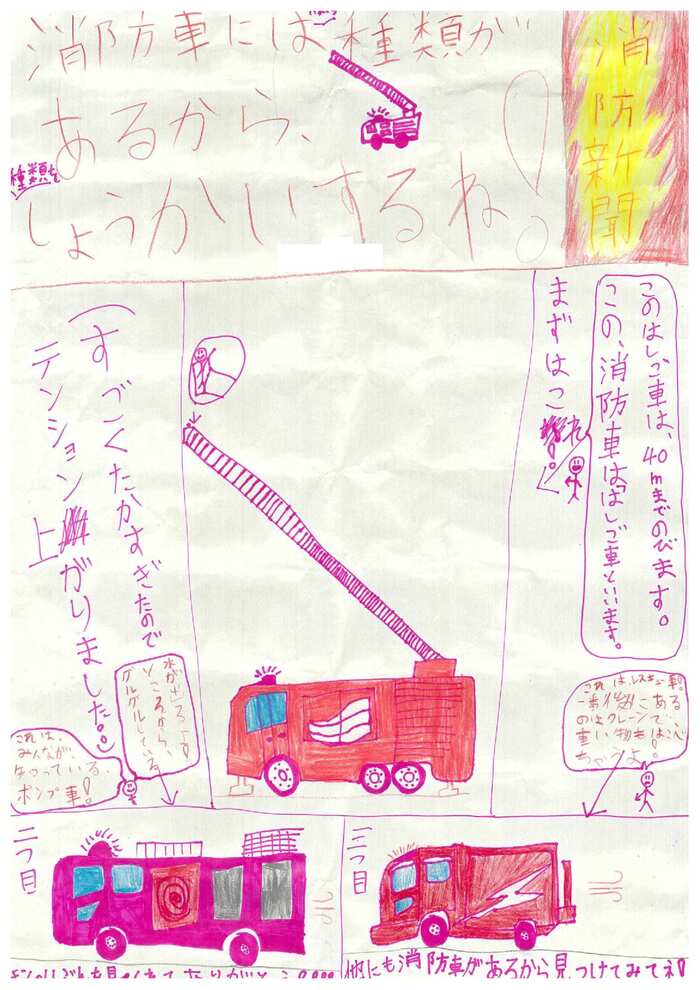 消防新聞
消防車には種類が
あるから、
種類も
しょうかいするね!
このはしご車は、40mまでのびます。
この、消防車は「はしご車」といいます。
まずはこれ。
(すごくたかすぎたので
テンション上がりました。。)
これはレスキュー車。
のはクレーンで、
重い物もはこべ
ちゃうよ!
グルグルしている
これは、
みんなが、
知っている、
ポンプ車!
二つ目
三つ目
他にも消防車があるから見つけてみてネ!